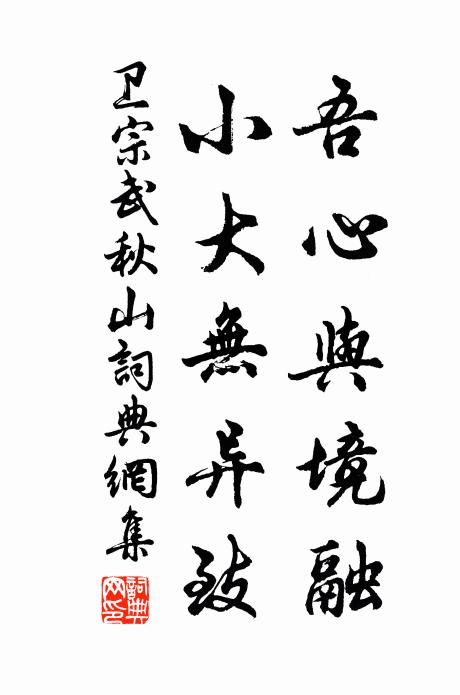 吾心與境融
小大無异致
卫宗武秋山詞典網集
詞典网印